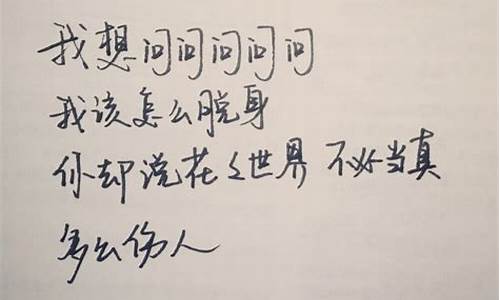 我想问问问问问
我该怎么脱身
你却说花々世界 不必当真
多么伤人